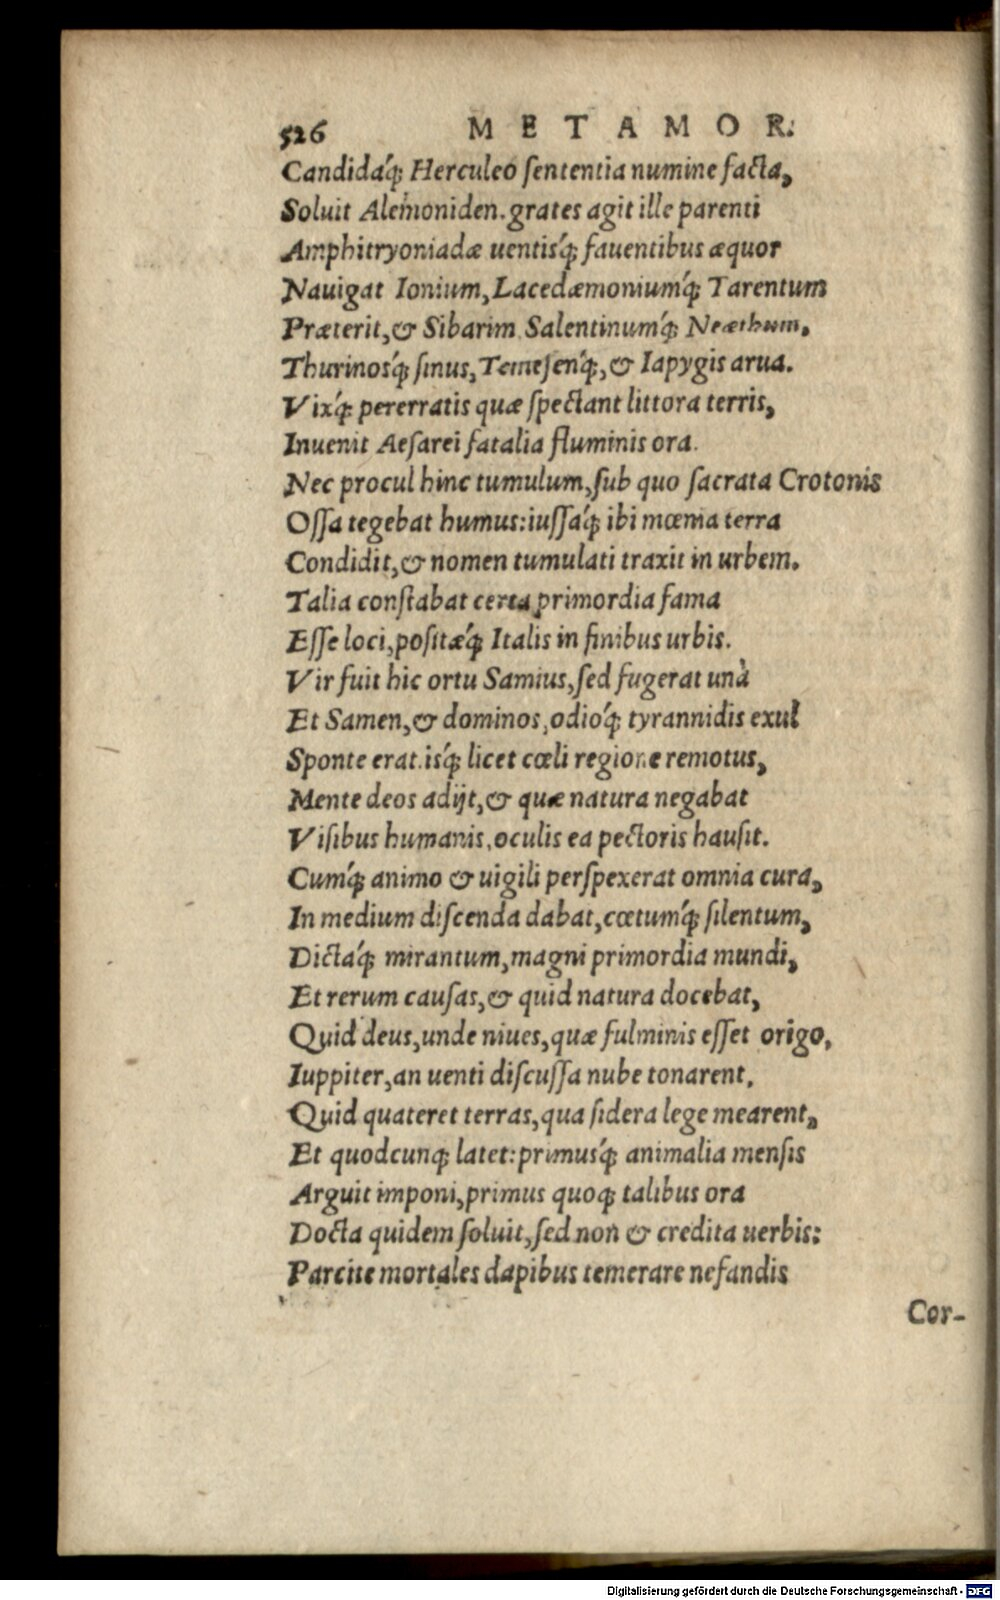 526 METAMOR.
Candidaq́; Herculeo ſententia numine facta,
Soluit Alemoniden. grates agit ille parenti
Amphitryoniadæ uentisq́; fauentibus æquor
Nauigat Ionium, Lacedæmoniumq́; Tarentum
Præterit, & Sibarim Salentinumq́; Neæthum,
Thurinosq́; ſinus, Temeſenq́;, & Iapygis arua.
Vixq́; pererratis quæ ſpectant littora terris,
Inuenit Aeſarei fatalia fluminis ora.
Nec procul hinc tumulum, ſub quo ſacrata Crotonis
Oſſa tegebat humus: iuſſaq́; ibi mœnia terra
Condidit, & nomen tumulati traxit in urbem.
Talia conſtabat certa primordia fama
Eſſe loci, poſitæq́; Italis in finibus urbis.
Vir fuit hic ortu Samius, ſed fugerat unà
Et Samen, & dominos, odioq́; tyrannidis exul
Sponte erat. isq́; licet cœli regione remotus,
Mente deos adijt, & quæ natura negabat
Viſibus humanis, oculis ea pectoris hauſit.
Cumq́; animo & uigili perſpexerat omnia cura,
In medium diſcenda dabat, cœtumq́; ſilentum,
Dictaq́; mirantum, magni primordia mundi,
Et rerum cauſas, & quid natura docebat,
Quid deus, unde niues, quæ fulminis eſſet origo,
Iuppiter, an uenti diſcuſſa nube tonarent.
Quid quateret terras, qua ſidera lege mearent,
Et quodcunq; latet: primusq́; animalia menſis
Arguit imponi, primus quoq; talibus ora
Docta quidem ſoluit, ſed non & credita uerbis:
Parcite mortales dapibus temerare nefandis
Cor-
Digitalisierung gefördert durch die Deutsche Forschungsgemeinschaft - DFG